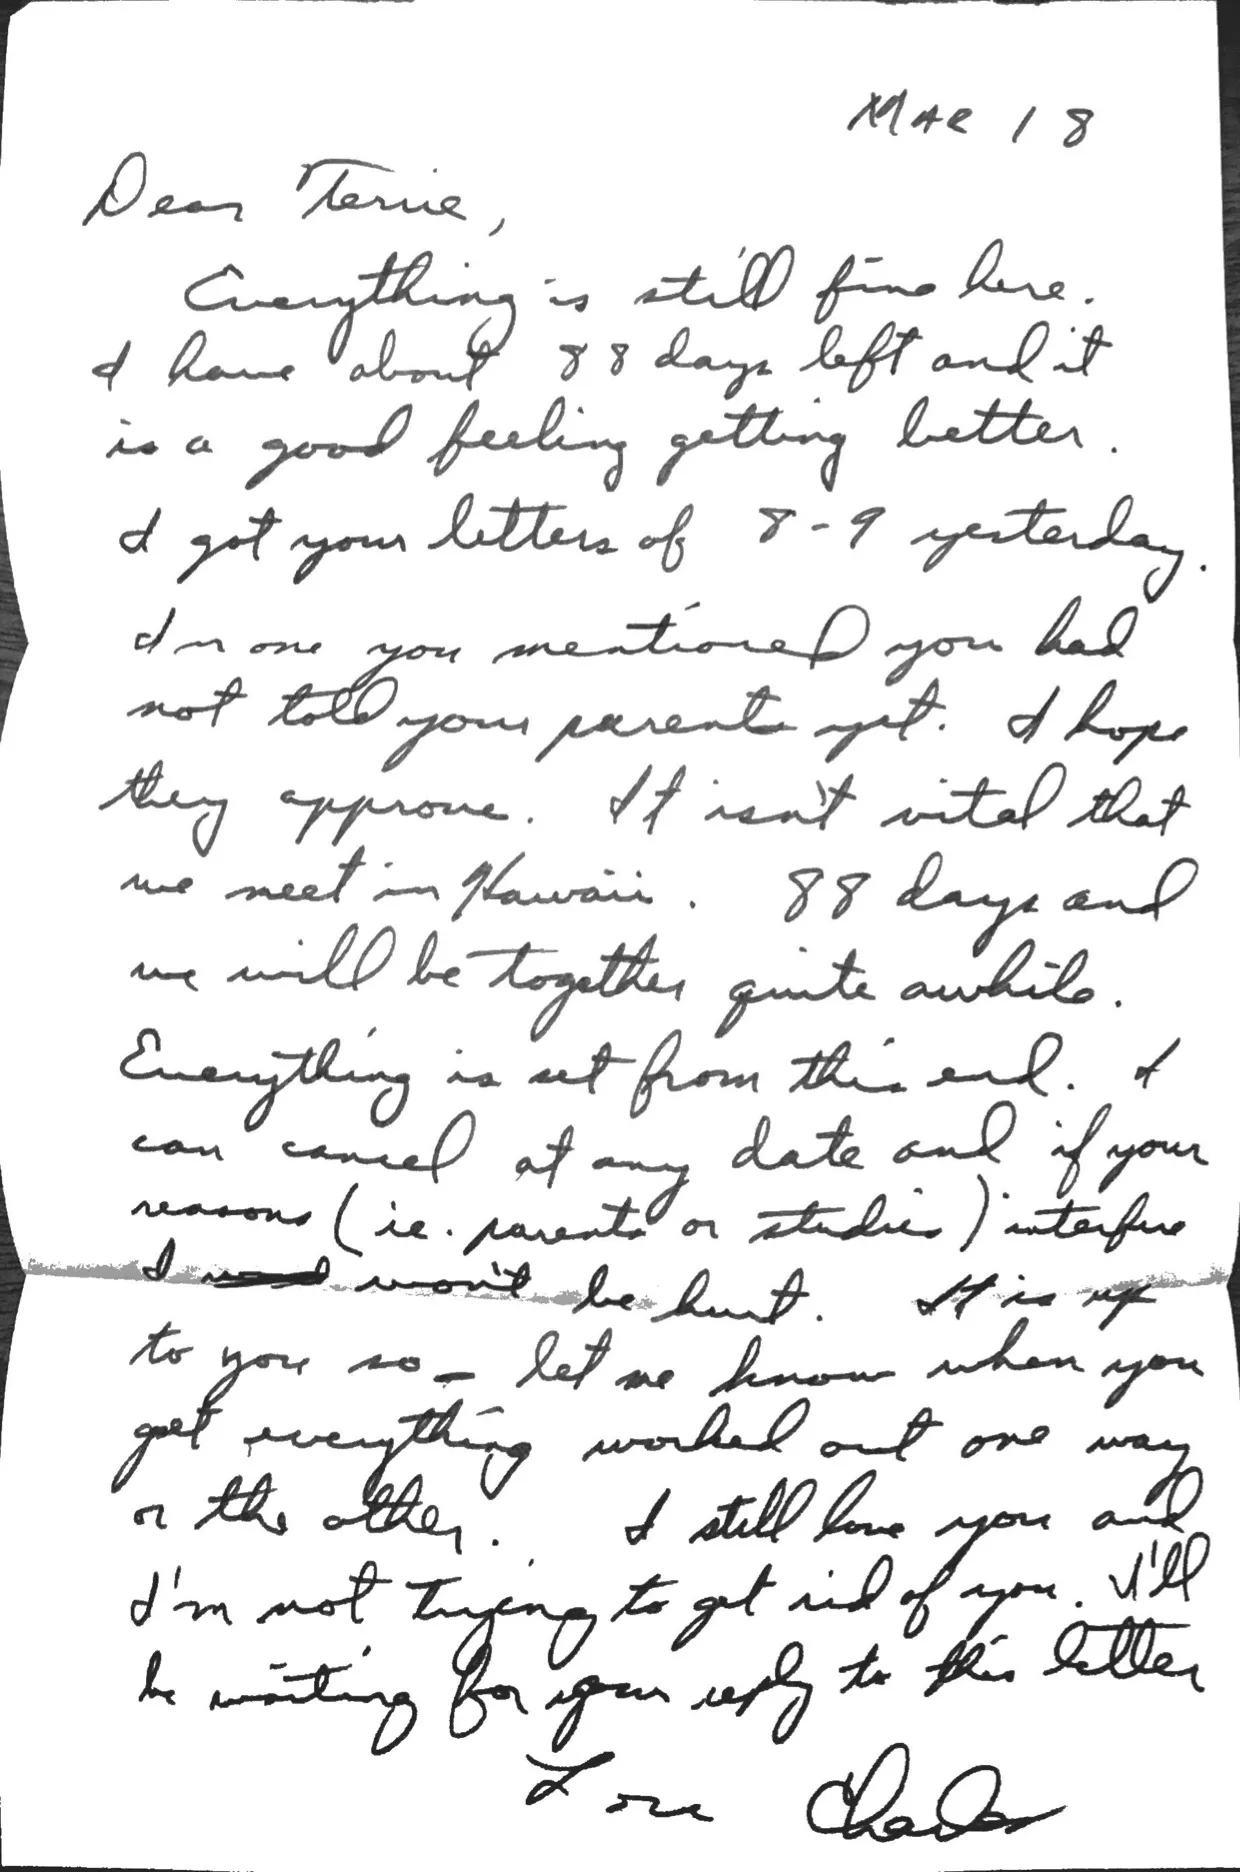 MAR 18
Dear Terrie,
Everything is still fine here.
I have about 88 days left and it
is a good feeling getting better.
I got your letters of 8-9 yesterday.
In one you mentioned you had
not told your parents yet. I hope
they approve. It isn't vital that
we meet in Hawaii. 88 days and
we will be together quite awhile.
Everything is set from this end. I
can cancel at any date and if your
reasons (ie. parents or studies) interfere
I won't be hurt. It is up
to you so – let me know when you
get everything worked out one way
or the other. I still love you and
I'm not trying to get rid of you. I'll
be waiting for your reply to this letter
Love Charles